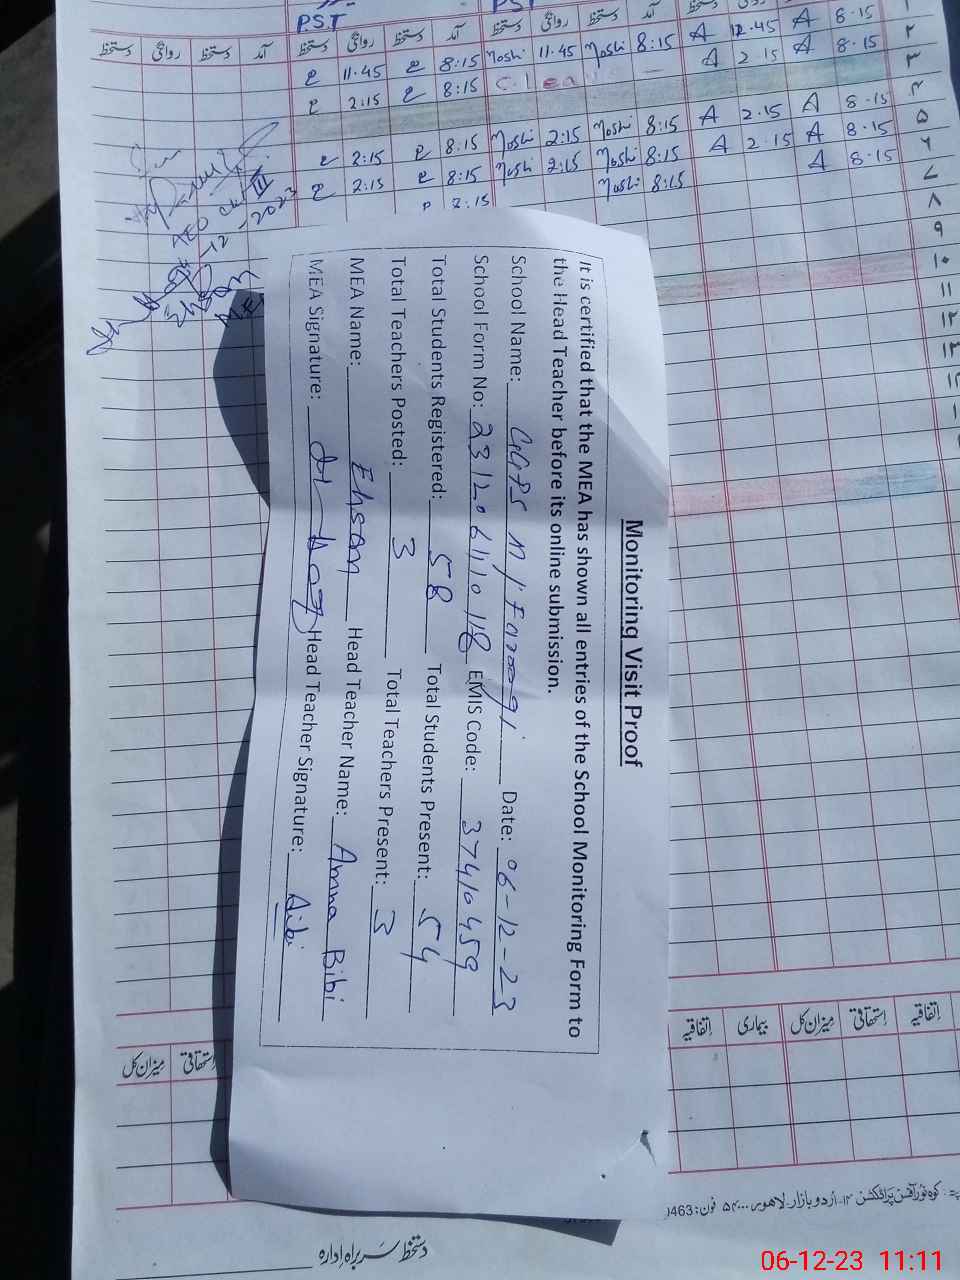 PST
PST
دستخط روانگی دستخط آمد دستخط روانگی دستخط آمد دستخط روانگی دستخط آمد
11.45 8:15 Noshi 11.45 Noshi 8:15 A 12.45 A 8.15 ۲
2:15 8:15 Clea A 2.15 A 8.15 ۳
۴
2:15 8:15 Noshi 2:15 Noshi 8:15 A 2.15 A 8.15 ۵
2:15 8:15 Noshi 2:15 Noshi 8:15 A 2.15 A 8.15 ۶
Noshi 8:15 A 8.15 ۷
۸
۹
۱۰
۱۱
۱۲
۱۳
Monitoring Visit Proof
It is certified that the MEA has shown all entries of the School Monitoring Form to
the Head Teacher before its online submission.
School Name: GGPS N/Farooqi Date: 06-12-23
School Form No: EMIS Code: 37410459
Total Students Registered: 58 Total Students Present: 54
Total Teachers Posted: 3 Total Teachers Present: 3
MEA Name: Ehsan Head Teacher Name: Amna Bibi
MEA Signature: Head Teacher Signature: Aibi
اتفاقیہ بیماری میزان کل استحقاقی اتفاقیہ
میزان کل استحقاقی
کوہ نور آفسن پراڈکشن ۱۴-اردو بازار لاہور ۵۴۰۰۰ فون: 0463
دستخط سربراہ ادارہ
06-12-23 11:11